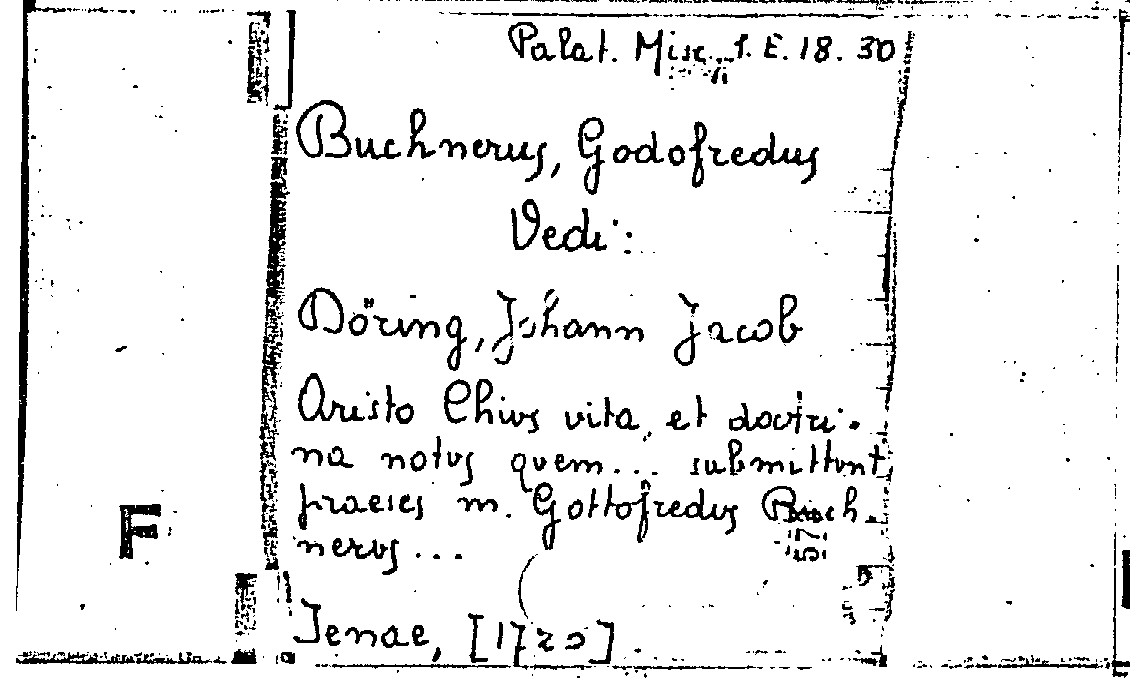 Palat. Misc. I. E. 18. 30
Buchnerus, Godofredus
Vedi:
Döring, Johann Jacob
Aristo Chius vita, et doctri-
na notus quem... submittunt
praeses m. Gottofredus Buch-
nerus...
F
Jenae, [1725].